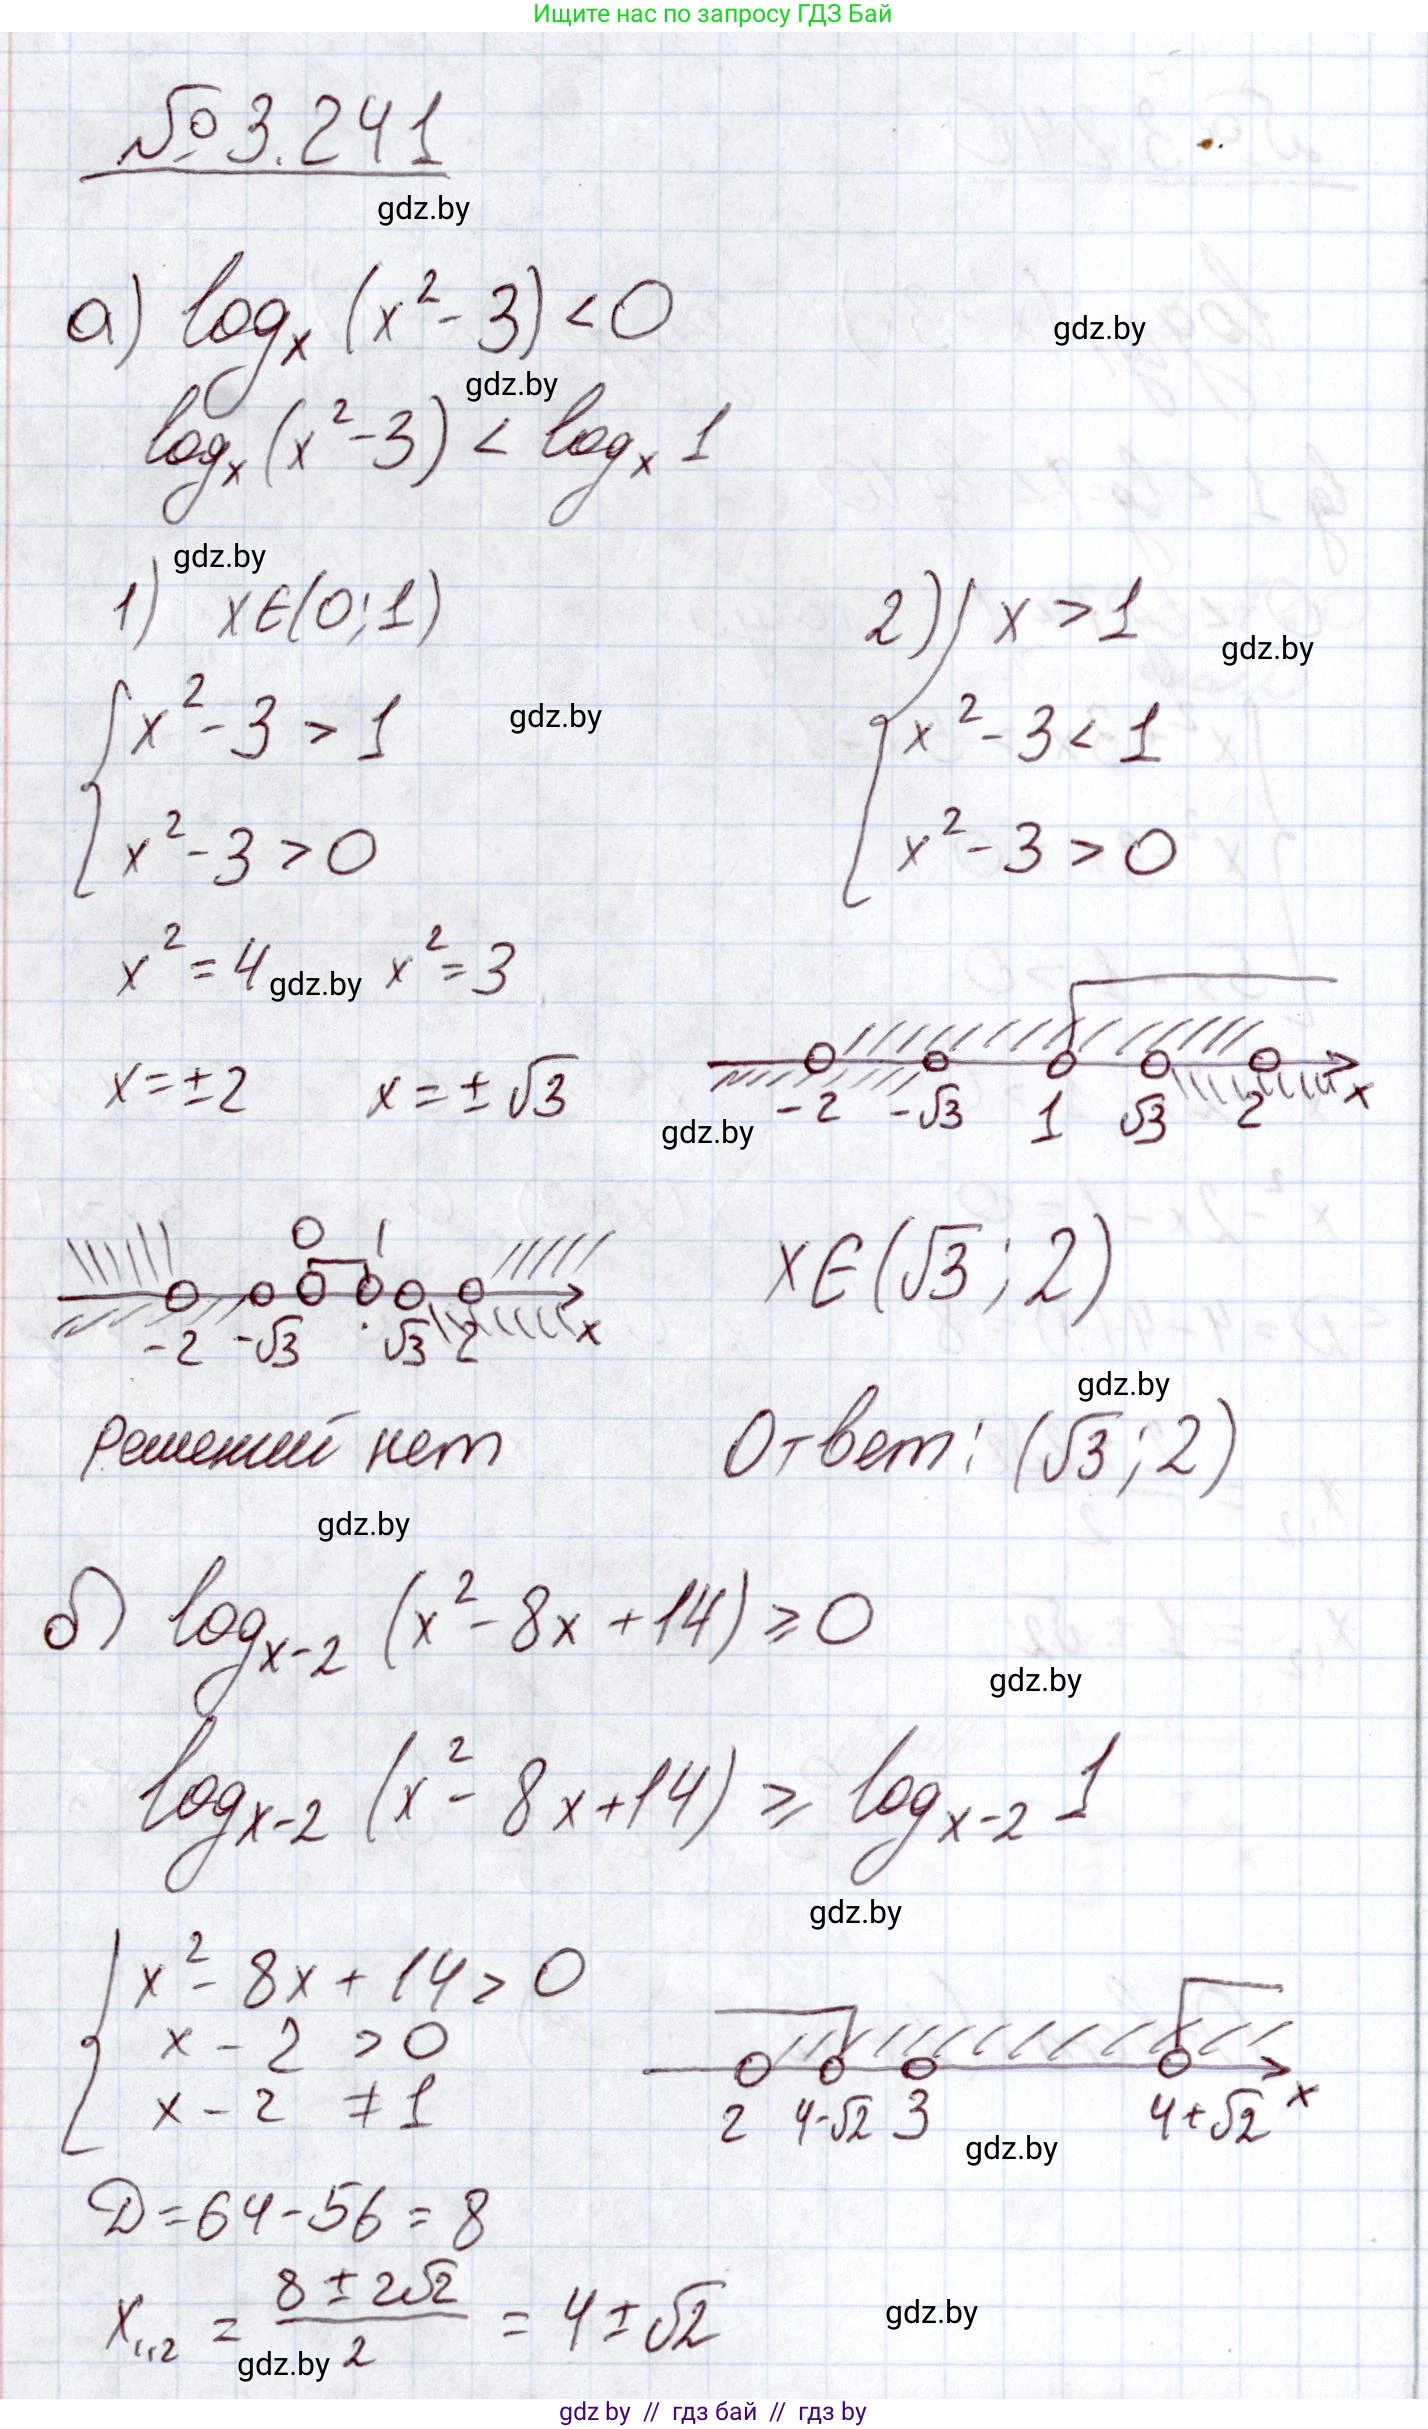 Ищите нас по запросу ГДЗ Бай
№ 3.241
gdz.by
а) log_x (x² - 3) < 0
gdz.by
gdz.by
log_x (x² - 3) < log_x 1
gdz.by
1) x∈(0; 1)
x² - 3 > 1
gdz.by
x² - 3 > 0
x² = 4 x² = 3
gdz.by
x = ±2 x = ±√3
0 1
-2 -√3 √3 2 x
Решений нет
2) x > 1
gdz.by
x² - 3 < 1
x² - 3 > 0
-2 -√3 1 √3 2 x
gdz.by
x∈(√3; 2)
gdz.by
Ответ: (√3; 2)
gdz.by
б) log_{x-2} (x² - 8x + 14) ≥ 0
gdz.by
log_{x-2} (x² - 8x + 14) ≥ log_{x-2} 1
gdz.by
x² - 8x + 14 > 0
x - 2 > 0
x - 2 ≠ 1
2 4-√2 3 4+√2 x
gdz.by
D = 64 - 56 = 8
x₁,₂ = (8 ± 2√2)/2 = 4 ± √2
gdz.by
gdz.by
gdz by // гдз бай // гдз by